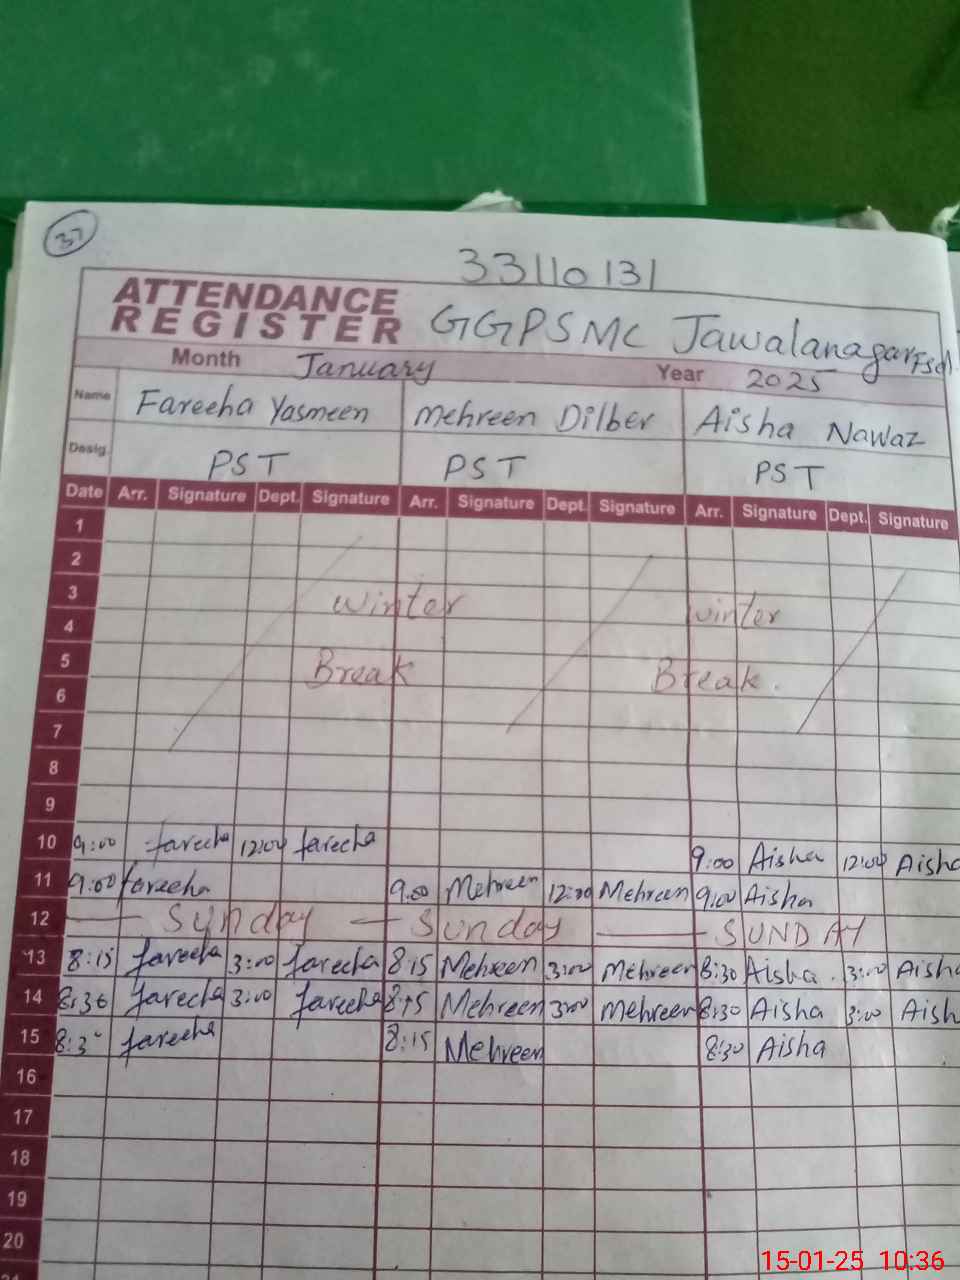 37
33110131
ATTENDANCE REGISTER GGPSMC Jawalanagar Fsd.
Month January Year 2025
Name Fareeha Yasmeen Mehreen Dilber Aisha Nawaz
Desig. PST PST PST
Date Arr. Signature Dept. Signature Arr. Signature Dept. Signature Arr. Signature Dept. Signature
1
2
3 Winter Winter
4
5 Break Break.
6
7
8
9
10 9:00 fareeha 12:00 fareeha 9:00 Aisha 12:00 Aisha
11 9:00 fareeha 9:00 Mehreen 12:00 Mehreen 9:00 Aisha
12 Sunday Sunday SUNDAY
13 8:15 fareeha 3:00 fareeha 8:15 Mehreen 3:00 Mehreen 8:30 Aisha. 3:00 Aisha
14 8:30 fareeha 3:00 fareeha 8:15 Mehreen 3:00 Mehreen 8:30 Aisha 3:00 Aish
15 8:30 fareeha 8:15 Mehreen 8:30 Aisha
16
17
18
19
20
15-01-25 10:36